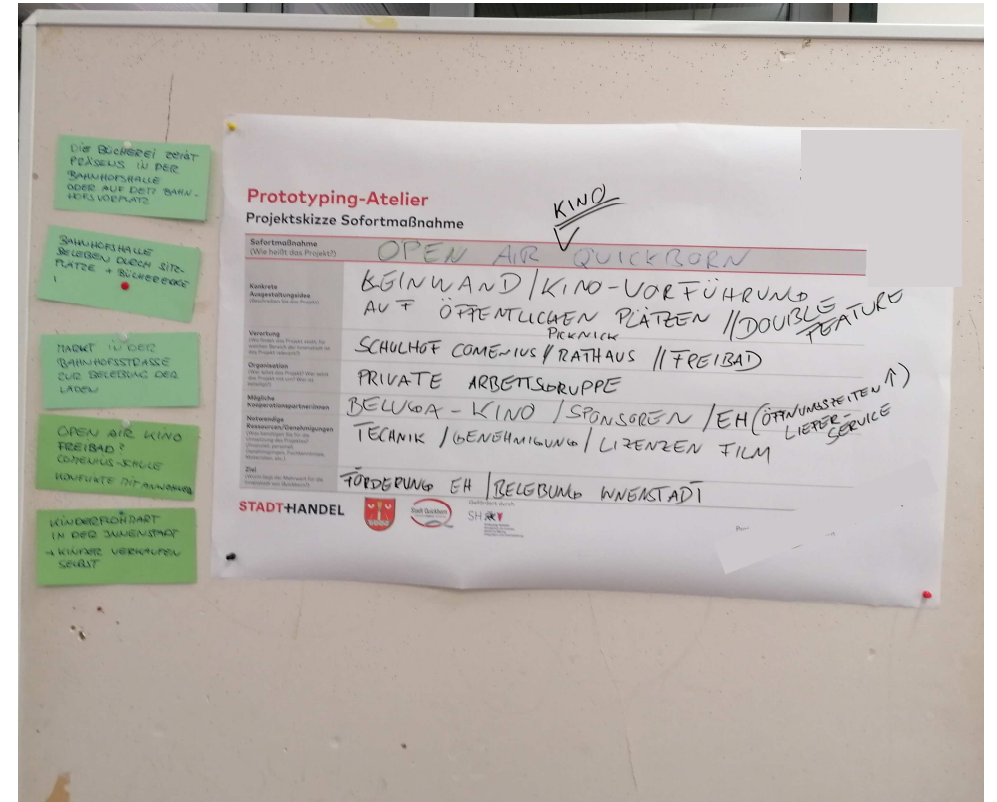 DIE BÜCHEREI ZEIGT
PRÄSENS IN DER
BAHNHOFSHALLE
ODER AUF DEM BAHN-
HOFSVORPLATZ
BAHNHOFSHALLE
BELEBEN DURCH SITZ-
PLÄTZE + BÜCHERECKE
!
MARKT IN DER
BAHNHOFSSTRASSE
ZUR BELEBUNG DER
LÄDEN
OPEN AIR KINO
FREIBAD?
COMENIUS-SCHULE
KONFLIKTE MIT ANWOHNER
KINDERFLOHMARKT
IN DER INNENSTADT
→ KINDER VERKAUFEN
SELBST
Prototyping-Atelier
Projektskizze Sofortmaßnahme
KINO
Sofortmaßnahme
(Wie heißt das Projekt?)
OPEN AIR QUICKBORN
Konkrete
Ausgestaltungsidee
(Beschreiben Sie das Projekt)
LEINWAND/KINO-VORFÜHRUNG
AUF ÖFFENTLICHEN PLÄTZEN //DOUBLE
FEATURE
Verortung
PICKNICK
SCHULHOF COMENIUS // RATHAUS // FREIBAD
Organisation
PRIVATE ARBEITSGRUPPE
Mögliche
Kooperationspartner:innen
BELUGA-KINO /SPONSOREN /EH (ÖFFNUNGSZEITEN ↑)
LIEFER-
SERVICE
Notwendige
Ressourcen/Genehmigungen
TECHNIK /GENEHMIGUNG / LIZENZEN FILM
Ziel
FÖRDERUNG EH /BELEBUNG INNENSTADT
STADT+HANDEL
Stadt Quickborn
SH